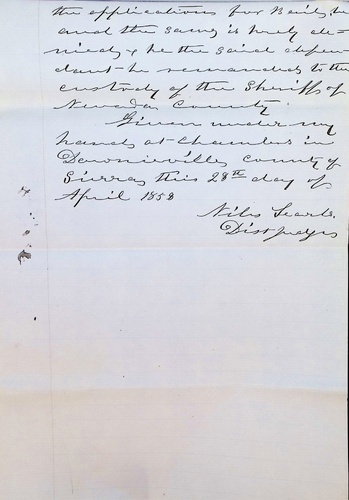 the application for Bail, be
and the same is hereby de-
nied & he the said defen-
dant be remanded to the
custody of the Sheriff of
Nevada County
Given under my
hand at Chambers in
Downieville county of
Sierra this 28th day of
April 1858
Niles Searls,
Dist Judge